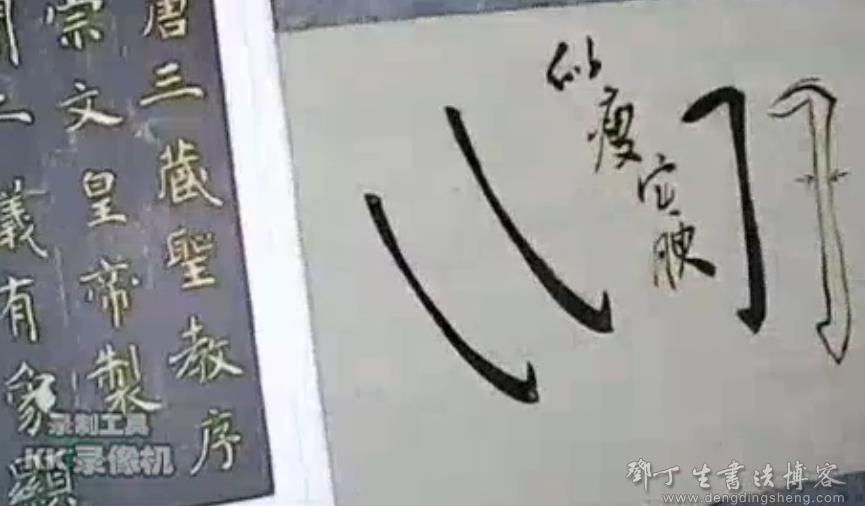 唐三藏聖教序
宗文皇帝製
聞二儀有象顯
似瘦实腴
录制工具
KK 录像机
鄧丁生書法博客
www.dengdingsheng.com/bk/